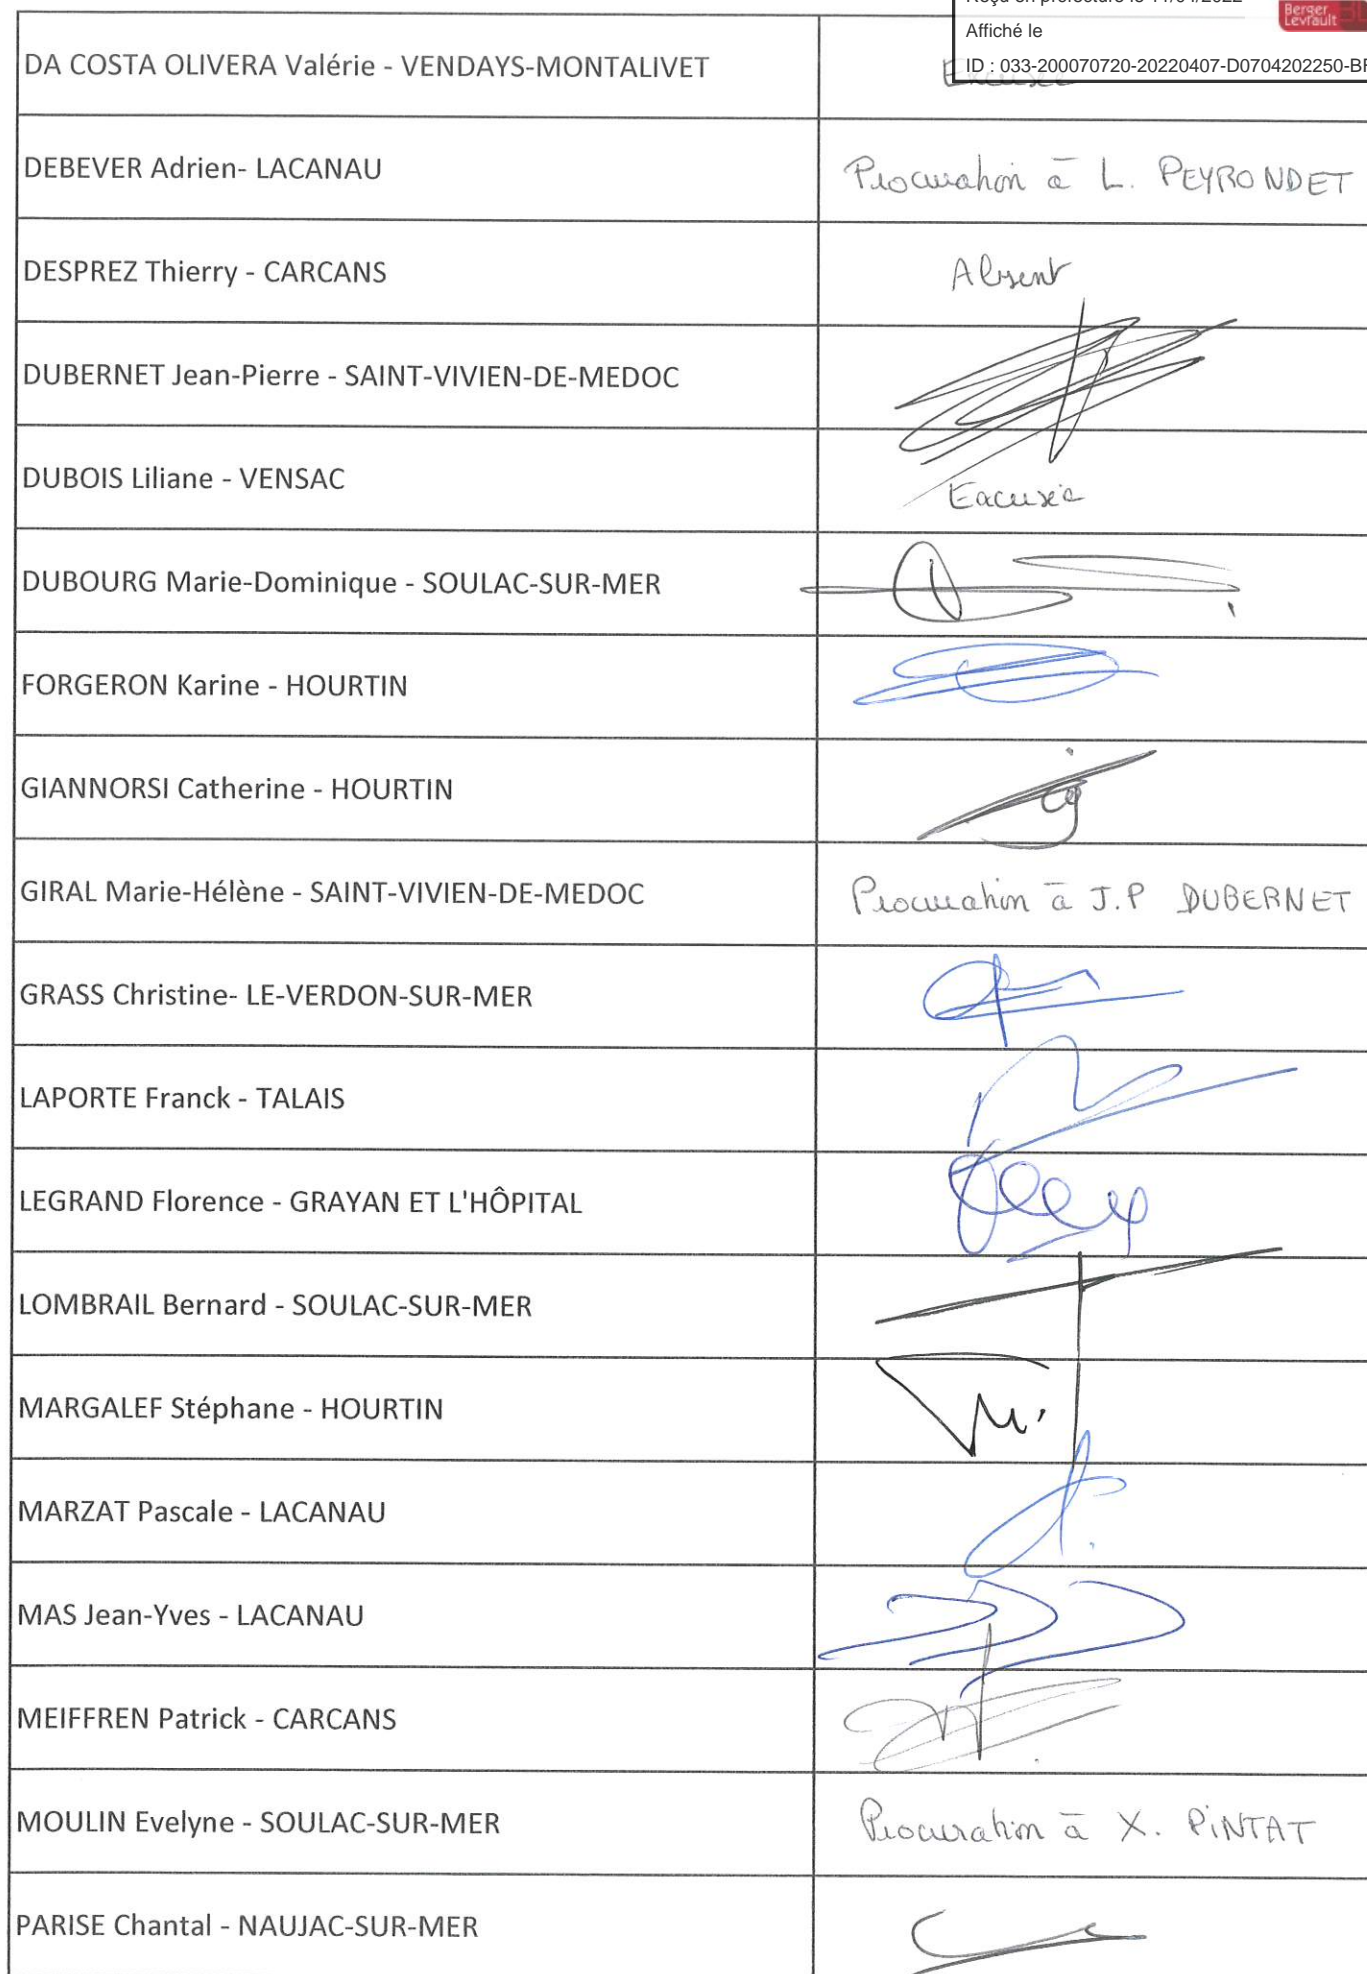 Affiché le
Berger
Levrault
ID : 033-200070720-20220407-D0704202250-BF
DA COSTA OLIVERA Valérie - VENDAYS-MONTALIVET
Excusée
DEBEVER Adrien- LACANAU
Procuration à L. PEYRONDET
DESPREZ Thierry - CARCANS
Absent
DUBERNET Jean-Pierre - SAINT-VIVIEN-DE-MEDOC
DUBOIS Liliane - VENSAC
Excusée
DUBOURG Marie-Dominique - SOULAC-SUR-MER
FORGERON Karine - HOURTIN
GIANNORSI Catherine - HOURTIN
GIRAL Marie-Hélène - SAINT-VIVIEN-DE-MEDOC
Procuration à J.P DUBERNET
GRASS Christine- LE-VERDON-SUR-MER
LAPORTE Franck - TALAIS
LEGRAND Florence - GRAYAN ET L'HÔPITAL
LOMBRAIL Bernard - SOULAC-SUR-MER
MARGALEF Stéphane - HOURTIN
MARZAT Pascale - LACANAU
MAS Jean-Yves - LACANAU
MEIFFREN Patrick - CARCANS
MOULIN Evelyne - SOULAC-SUR-MER
Procuration à X. PINTAT
PARISE Chantal - NAUJAC-SUR-MER